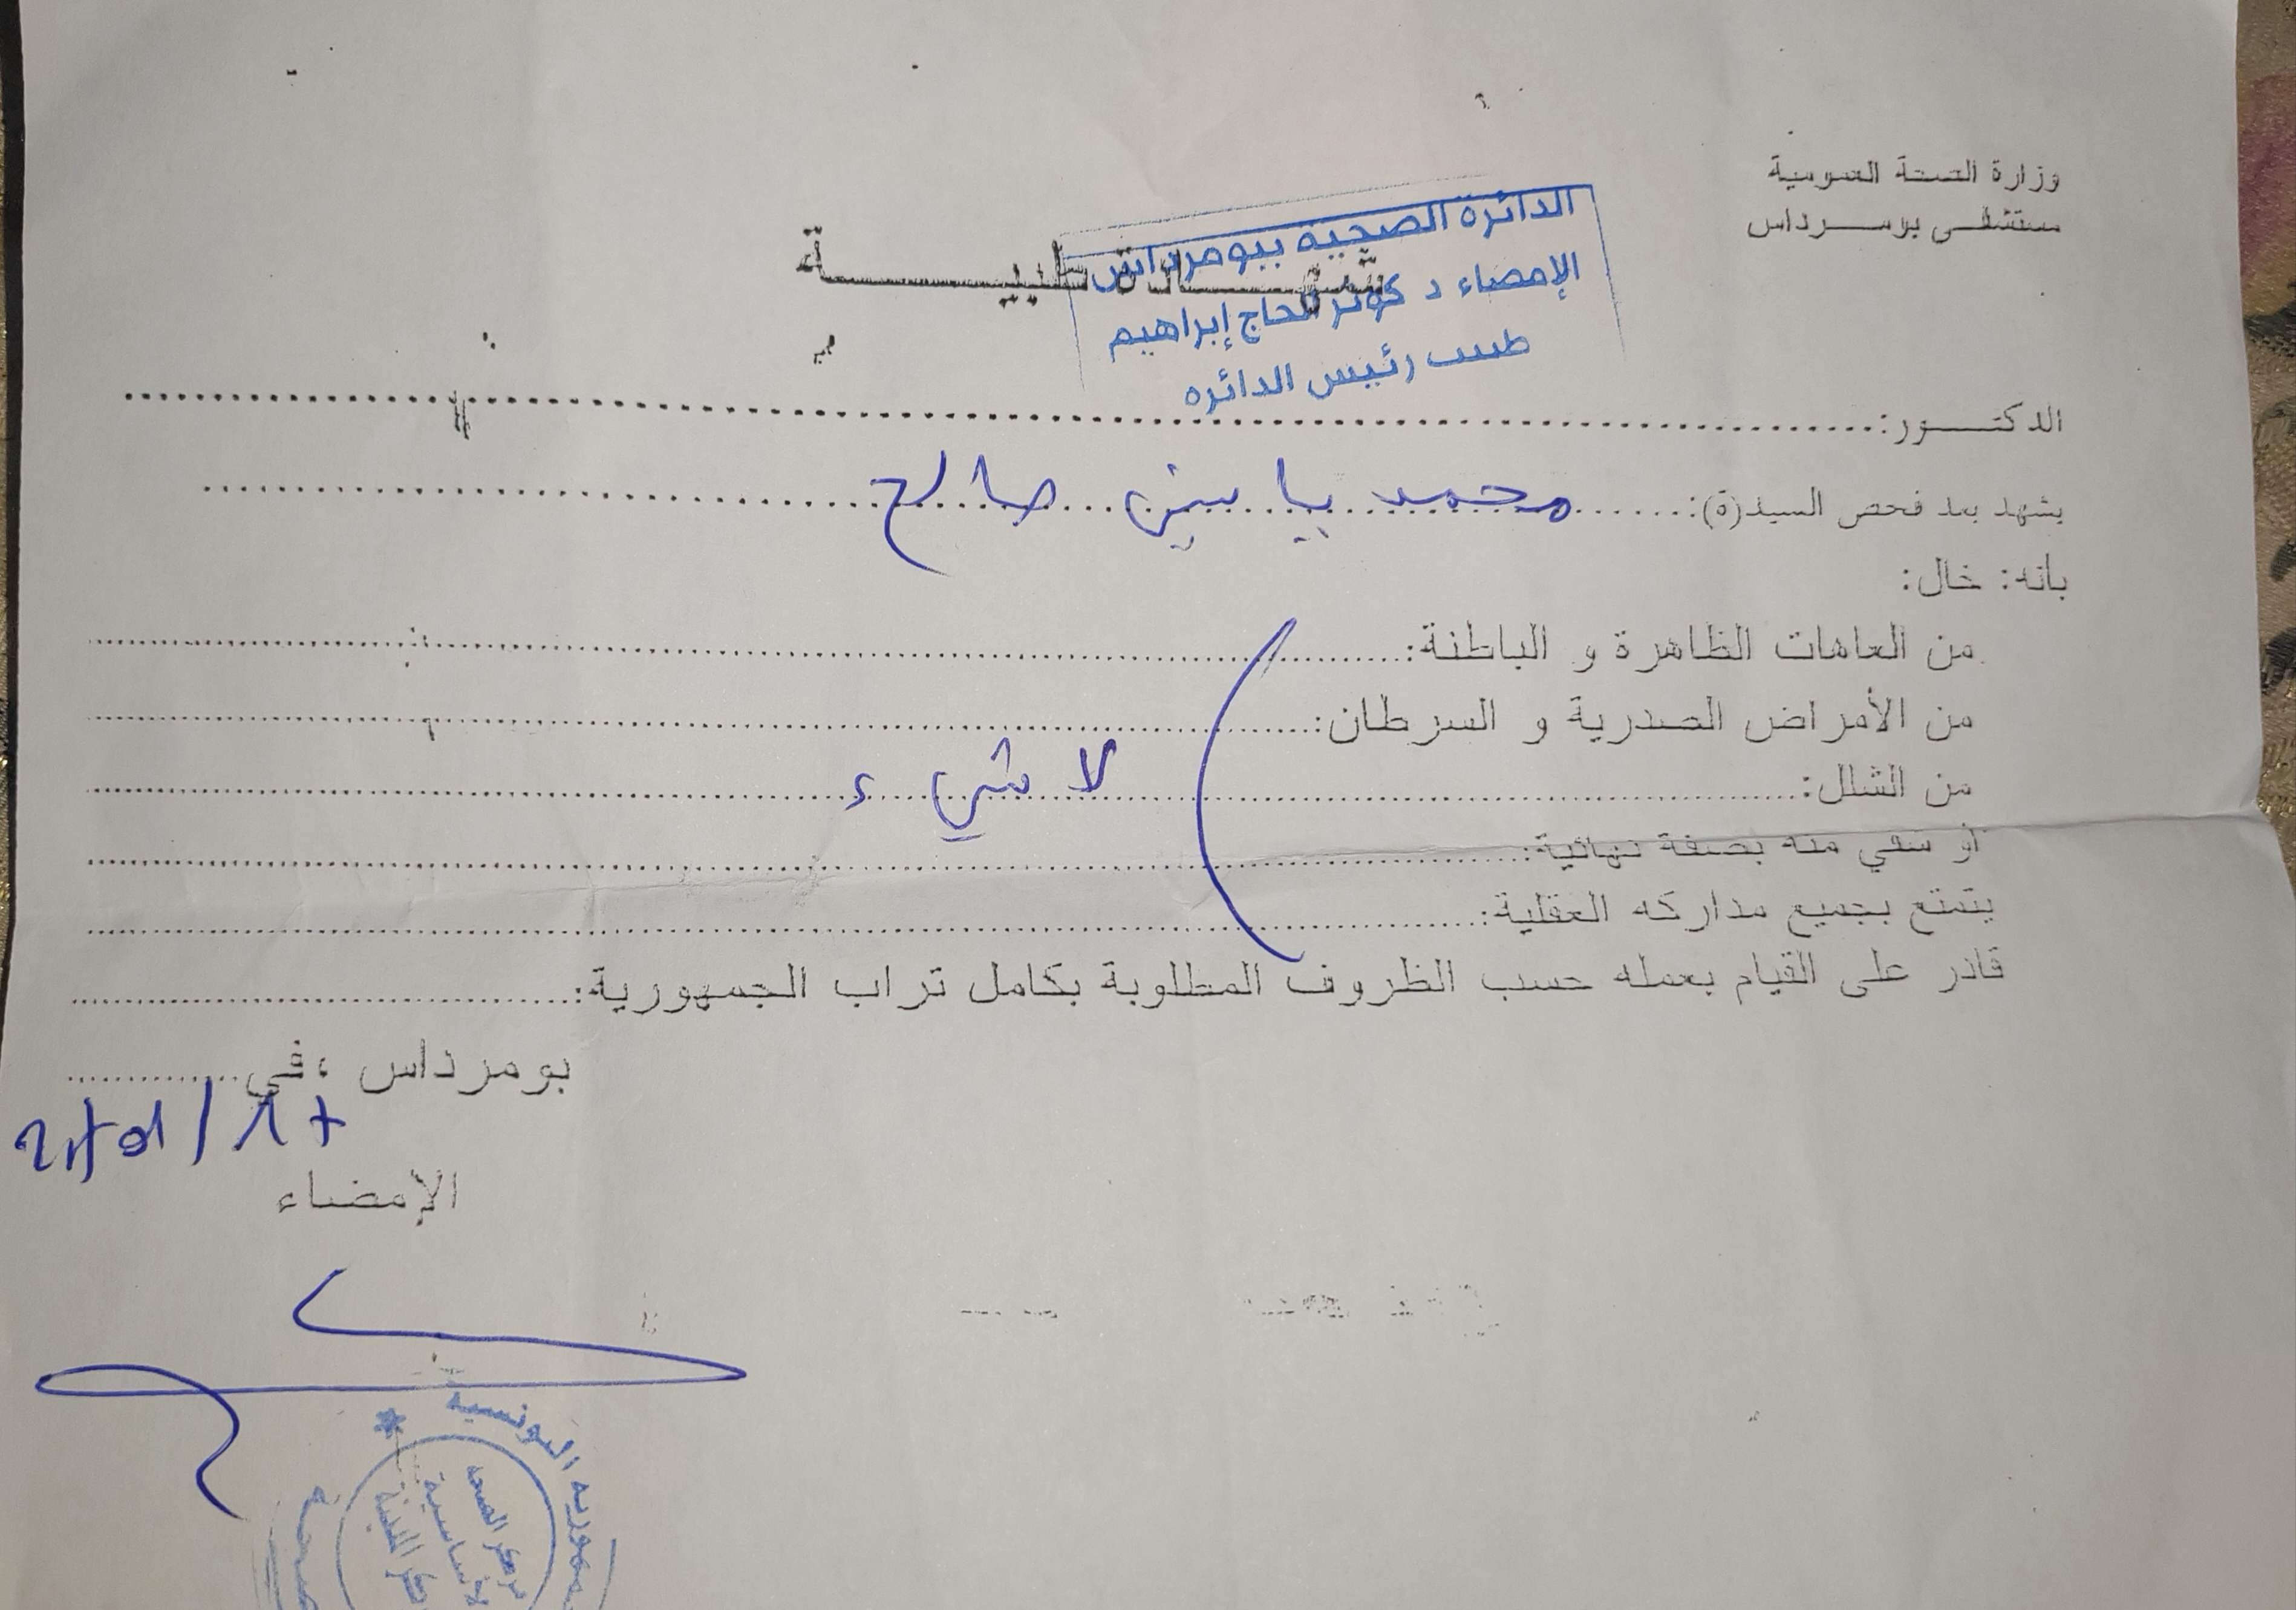 وزارة الصحة العمومية
مستشفى بومرداس
شهادة طبية
الدائرة الصحية ببومرداس
الإمضاء د كوثر الحاج إبراهيم
طبيب رئيس الدائرة
الدكتور:
يشهد بعد فحص السيد(ة): محمد ياسين صالح
بأنه: خال:
من العاهات الظاهرة و الباطنة:
من الأمراض الصدرية و السرطان:
من الشلل: لا شيء
أو شفي منه بصفة نهائية:
يتمتع بجميع مداركه العقلية:
قادر على القيام بعمله حسب الظروف المطلوبة بكامل تراب الجمهورية:
بومرداس ،في
الإمضاء
الجمهورية التونسية
مركز الصحة
الأساسية